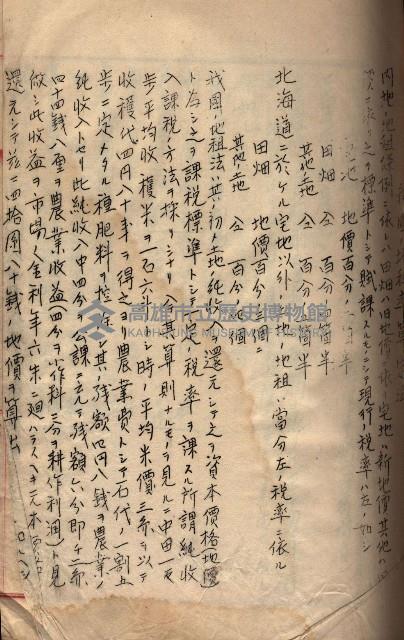 内地ノ地租条例ニ依レハ田畑ハ旧地價ニ依リ宅地ハ新地價其他ハ
ニ依リ之ヲ標準トシテ賦課スルモノニシテ現行ノ税率ハ左ノ如シ
宅地 地價百分ノ二箇半
田畑 仝 百分ノ四箇半
其他ノ土地 仝 百分ノ五箇半
北海道ニ於ケル宅地以外ノ土地ノ地租ハ當分左ノ税率ニ依ル
田畑 地價百分ノ
其他ノ土地 仝 百分ノ 箇
我國ノ地租法ハ其ノ初メ土地ノ純收 ヲ還元シテ之ヲ資本價格(地價)
ト為シ之ヲ課税標準トシテ 定ノ税率ヲ課スル所謂純收
入課税ノ方法ヲ採リシナリ今其算則ナルモノヲ見ルニ中田一反
歩ノ平均收穫米ヲ一石六斗トシ時ノ平均米價三系ヲ以テ
收穫代四円八十錢ヲ得之ヨリ農業費トシテ石代ノ一割五
歩ニ定メタル種肥料ヲ控 シ其ノ残額四円八錢ヲ農業ノ
純收入トセリ此純收入中四分ヲ公課トシテ残額六分即チ二系
四十四錢八厘ヲ農業收益四分ヲ小作料二分ヲ耕作利潤)ト見
做シ此收益ヲ市場ノ金利年六朱ニ廻ハラスヘキ元本
還元シテ茲ニ四拾圓八十錢ノ地價ヲ算出
高雄市立歷史博物館
KAOHSIUNG MUSEUM OF HISTORY